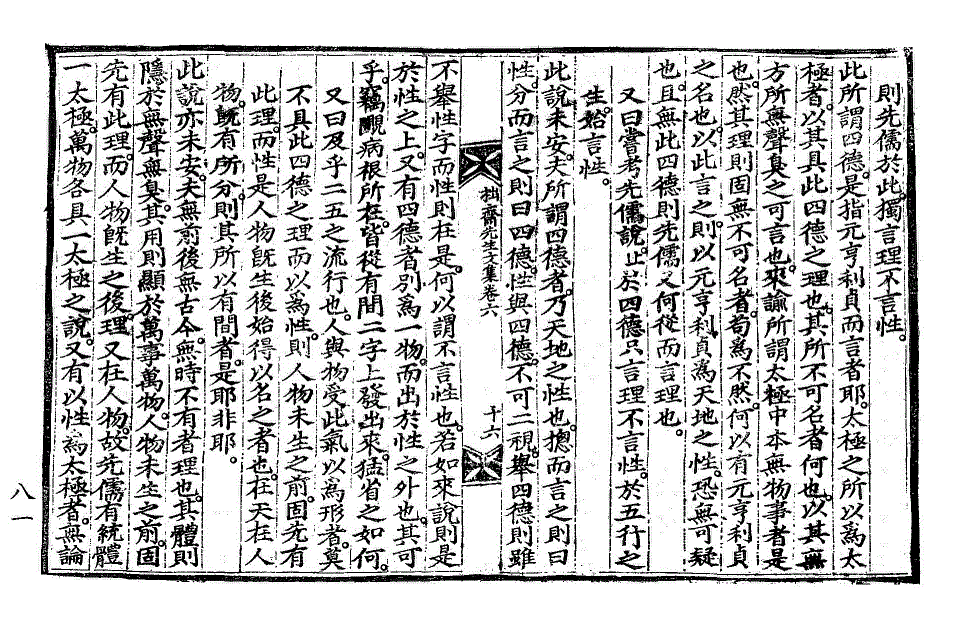 則先儒於此。獨言理不言性。
此所謂四德。是指元亨利貞而言者耶。太極之所以爲太
極者。以其具此四德之理也。其所不可名者何也。以其無
方所無聲臭之可言也。來諭所謂太極中本無物事者是
也。然其理則固無不可名者。苟爲不然。何以有元亨利貞
之名也。以此言之。則以元亨利貞爲天地之性。恐無可疑
也。且無此四德。則先儒又何從而言理也。
又曰嘗考先儒說。止於四德只言理不言性。於五行之
生。始言性。
此說未安。夫所謂四德者。乃天地之性也。摠而言之則曰
性。分而言之則曰四德。性與四德。不可二視。舉四德則雖
拙齋先生文集卷六
十六
不舉性字而性則在是。何以謂不言性也。若如來說則是
於性之上。又有四德者別爲一物。而出於性之外也。其可
乎。竊覸病根所在。皆從有間二字上發出來。猛省之如何。
又曰及乎二五之流行也。人與物受此氣以爲形者。莫
不具此四德之理而以爲性。則人物未生之前。固先有
此理。而性是人物旣生後始得以名之者也。在天在人
物。旣有所分。則其所以有間者。是耶非耶。
此說亦未安。夫無前後無古今。無時不有者理也。其體則
隱於無聲無臭。其用則顯於萬事萬物。人物未生之前。固
先有此理。而人物旣生之後。理又在人物。故先儒有統體
一太極。萬物各具一太極之說。又有以性爲太極者。無論
八一